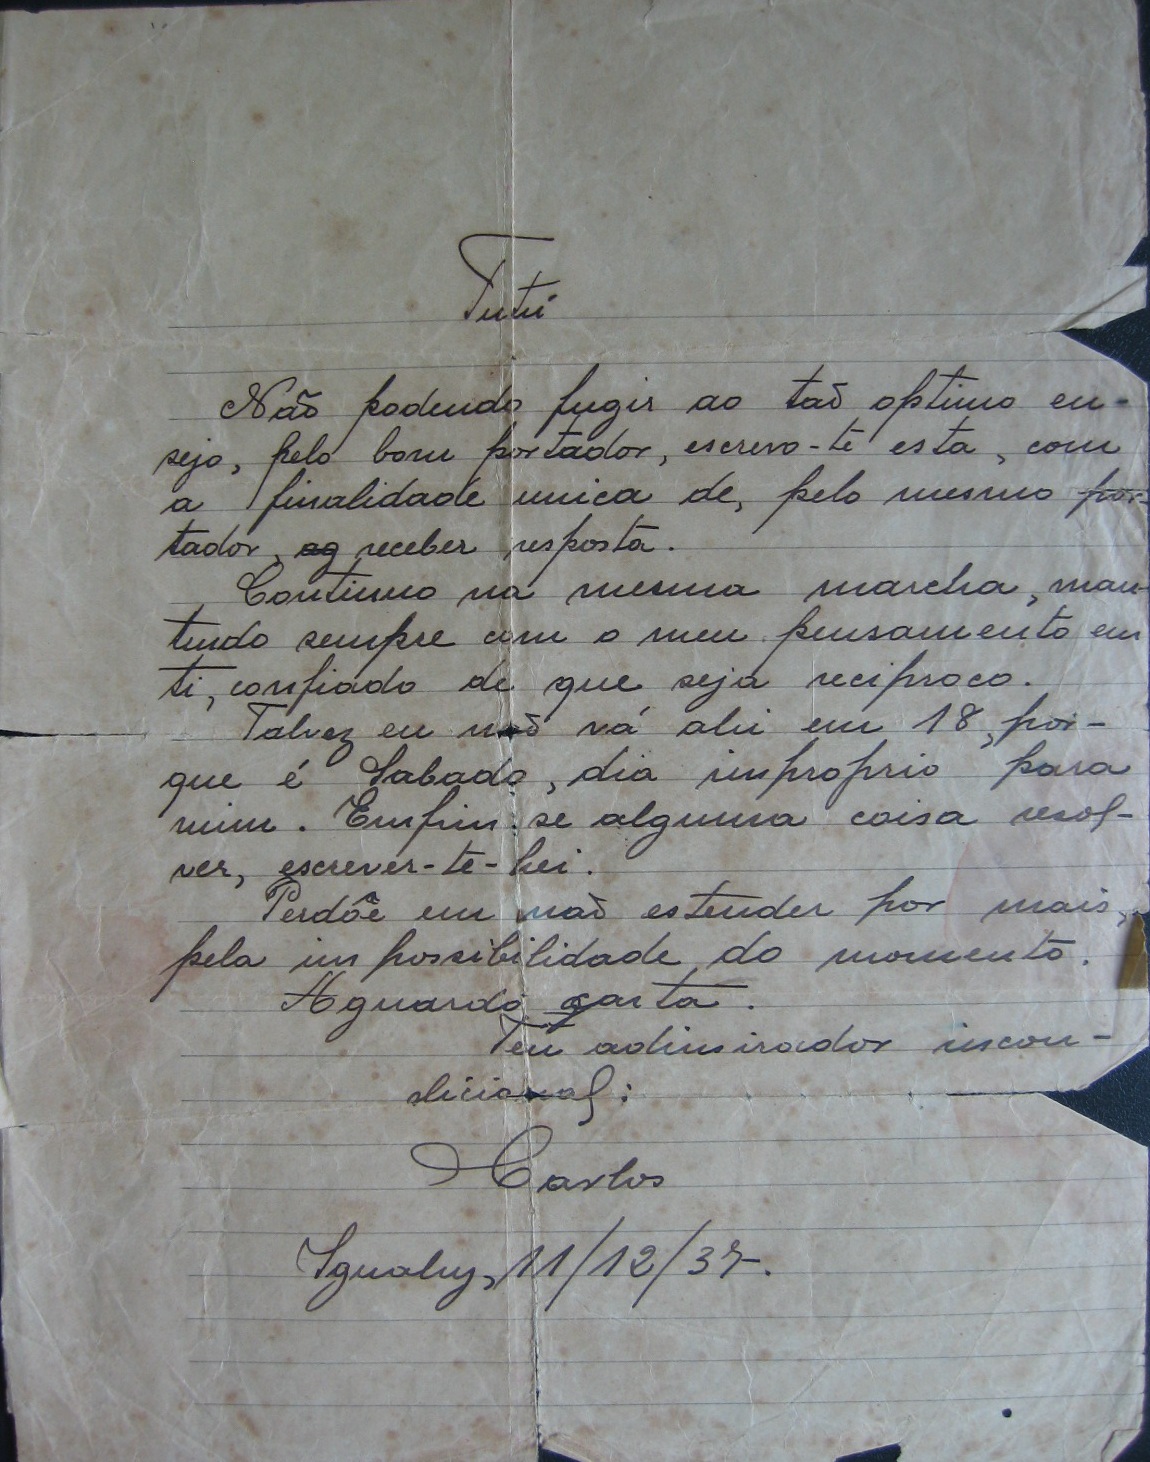 Tutú
Não podendo fugir ao taõ optimo en-
sejo, pelo bom portador, escrevo-te esta, com
a finalidade unica de, pelo mesmo por-
tador, receber resposta.
Continuo na mesma marcha, man-
tendo sempre com o meu pensamento em
ti, confiado de que seja reciproco.
Talvez eu naõ vá ahi em 18, por-
que é Sabado, dia improprio para
mim. Emfim se alguma coisa resol-
ver, escrever-te-hei.
Perdõe em naõ estender por mais,
pela impossibilidade do momento.
Aguardo carta.
Teu admirador incon-
dicional:
Carlos
Igualuy, 11/12/37.